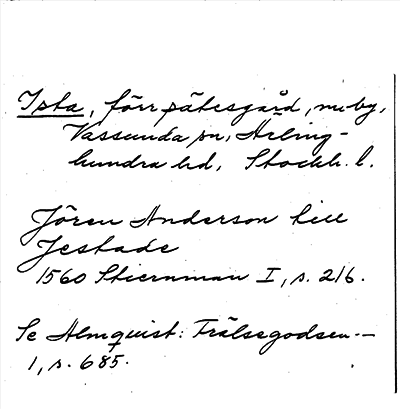 Ista, förr sätesgård, nu by,
Vassunda sn, Ärling-
hundra hd, Stockh. l.
Jören Anderson till
Jestade
1560 Stiernman I, s. 216.
Se Almquist: Frälsegodsen -
1, s. 685.